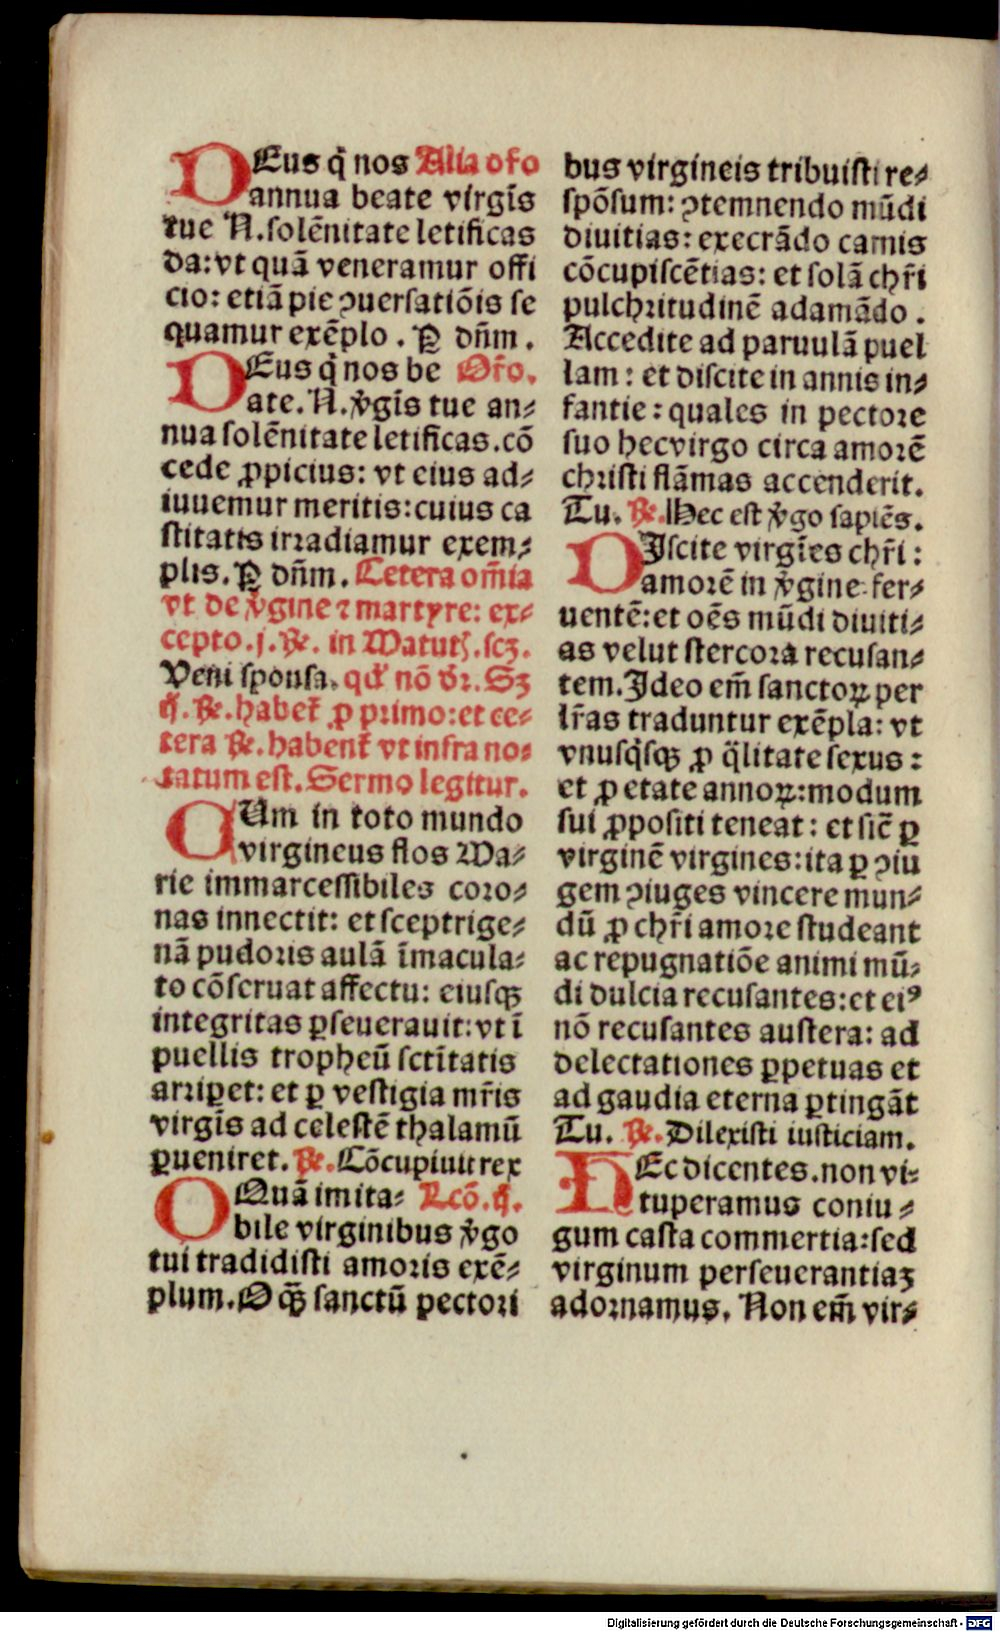 DEus q̇ nos Alia oro
annua beate virgīs
tue N. solēnitate letificas
da: vt quā veneramur offi
cio: etiā pie ꝯuersatiōis se
quamur exēplo. P dn̄m.
DEus q̇ nos be Oro.
ate. N. v̇gīs tue an⸗
nua solēnitate letificas. cō
cede ꝓpicius: vt eius ad⸗
iuuemur meritis: cuius ca
stitatis irradiamur exem⸗
plis. P dn̄m. Cetera om̄ia
vt de v̇gine ⁊ martyre: ex⸗
cepto .j. ℟. in Matuť. scꝫ.
Veni sponsa. qđ nō dr̄. Sꝫ
ij. ℟. habet̄ ꝓ primo: et ce⸗
tera ℟. habent̄ vt infra no⸗
tatum est. Sermo legitur.
CUm in toto mundo
virgineus flos Ma⸗
rie immarcessibiles coro⸗
nas innectit: et sceptrige⸗
nā pudoris aulā īmacula⸗
to cōseruat affectu: eiusqꝫ
integritas ꝑseuerauit: vt ī
puellis tropheū sctītatis
arriperet: et ꝑ vestigia mr̄is
virgīs ad celestē thalamū
ꝑueniret. ℟. Cōcupiuit rex
OQuā imita⸗ Lcō. ij.
bile virginibus v̇go
tui tradidisti amoris exē⸗
plum. O qꝫ sanctū pectori
bus virgineis tribuisti re⸗
spōsum: ꝯtemnendo mūdi
diuitias: execrādo carnis
cōcupiscētias: et solā chr̄i
pulchritudinē adamādo.
Accedite ad paruulā puel
lam: et discite in annis in⸗
fantie: quales in pectore
suo hec virgo circa amorē
christi flāmas accenderit.
Tu. ℟. Hec est v̇go sapiēs.
DIscite virgīes chr̄i:
amorē in v̇gine fer⸗
uentē: et oēs mūdi diuiti⸗
as velut stercora recusan⸗
tem. Ideo em̄ sanctoꝝ per
lr̄as traduntur exēpla: vt
vnusq̇sqꝫ ꝓ q̇litate sexus:
et ꝓ etate annoꝝ: modum
sui ꝓpositi teneat: et sic̄ ꝑ
virginē virgines: ita ꝑ ꝯiu
gem ꝯiuges vincere mun⸗
dū ꝓ chr̄i amore studeant
ac repugnatiōe animi mū⸗
di dulcia recusantes: et eiꝰ
nō recusantes austera: ad
delectationes ꝑpetuas et
ad gaudia eterna ꝑtingāt
Tu. ℟. Dilexisti iusticiam.
HEc dicentes. non vi⸗
tuperamus coniu⸗
gum casta commertia: sed
virginum perseuerantiaꝫ
adornamus. Non em̄ vir⸗
Digitalisierung gefördert durch die Deutsche Forschungsgemeinschaft - DFG